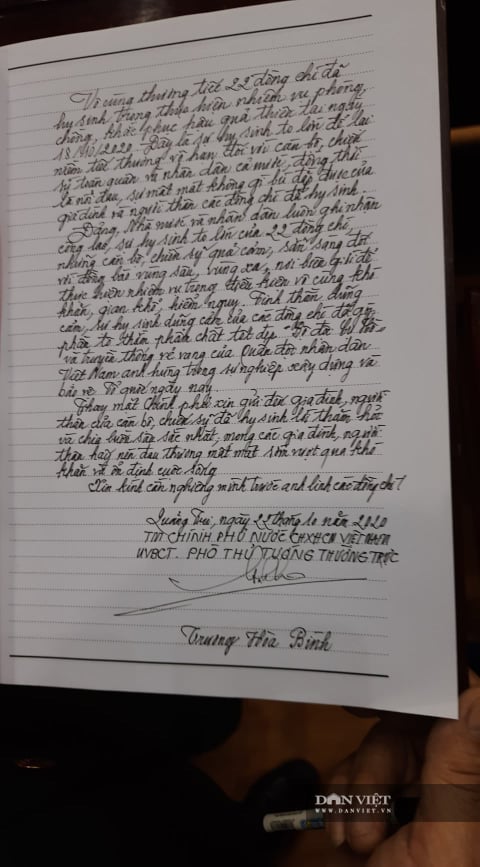 Vô cùng thương tiết 22 đồng chí đã
hy sinh trong thực hiện nhiệm vụ phòng,
chống, khắc phục hậu quả thiên tai ngày
18/10/2020. Đây là sự hy sinh to lớn để lại
niềm tiết thương vô hạn đối với cán bộ, chiến
sỹ toàn quân và nhân dân cả nước, đồng thời
là nỗi đau, sự mất mát không gì bù đắp được của
gia đình và người thân các đồng chí đã hy sinh.
Đảng, Nhà nước và nhân dân luôn ghi nhận
công lao, sự hy sinh to lớn của 22 đồng chí,
những cán bộ, chiến sỹ quả cảm, sẵn sàng đối
với đồng bào vùng sâu, vùng xa, nơi biên giới để
thực hiện nhiệm vụ trong điều kiện vô cùng khó
khăn, gian khổ, hiểm nguy. Tinh thần dũng
cảm, sự hy sinh dũng cảm của các đồng chí đã góp
phần tô thắm phẩm chất tốt đẹp "Bộ đội Cụ Hồ"
và truyền thống vẻ vang của Quân đội nhân dân
Việt Nam anh hùng trong sự nghiệp xây dựng và
bảo vệ Tổ quốc ngày nay.
Thay mặt Chính phủ xin gửi đến gia đình, người
thân của cán bộ, chiến sỹ đã hy sinh lời thăm hỏi
và chia buồn sâu sắc nhất, mong các gia đình, người
thân hãy nén đau thương mất mát sớm vượt qua khó
khăn và ổn định cuộc sống.
Xin kính cẩn nghiêng mình trước anh linh các đồng chí!
Quảng Trị, ngày 22 tháng 10 năm 2020
TM CHÍNH PHỦ NƯỚC CHXHCN VIỆT NAM
UVBCT. PHÓ THỦ TƯỚNG THƯỜNG TRỰC
Trương Hòa Bình
DÂN VIỆT
WWW.DANVIET.VN